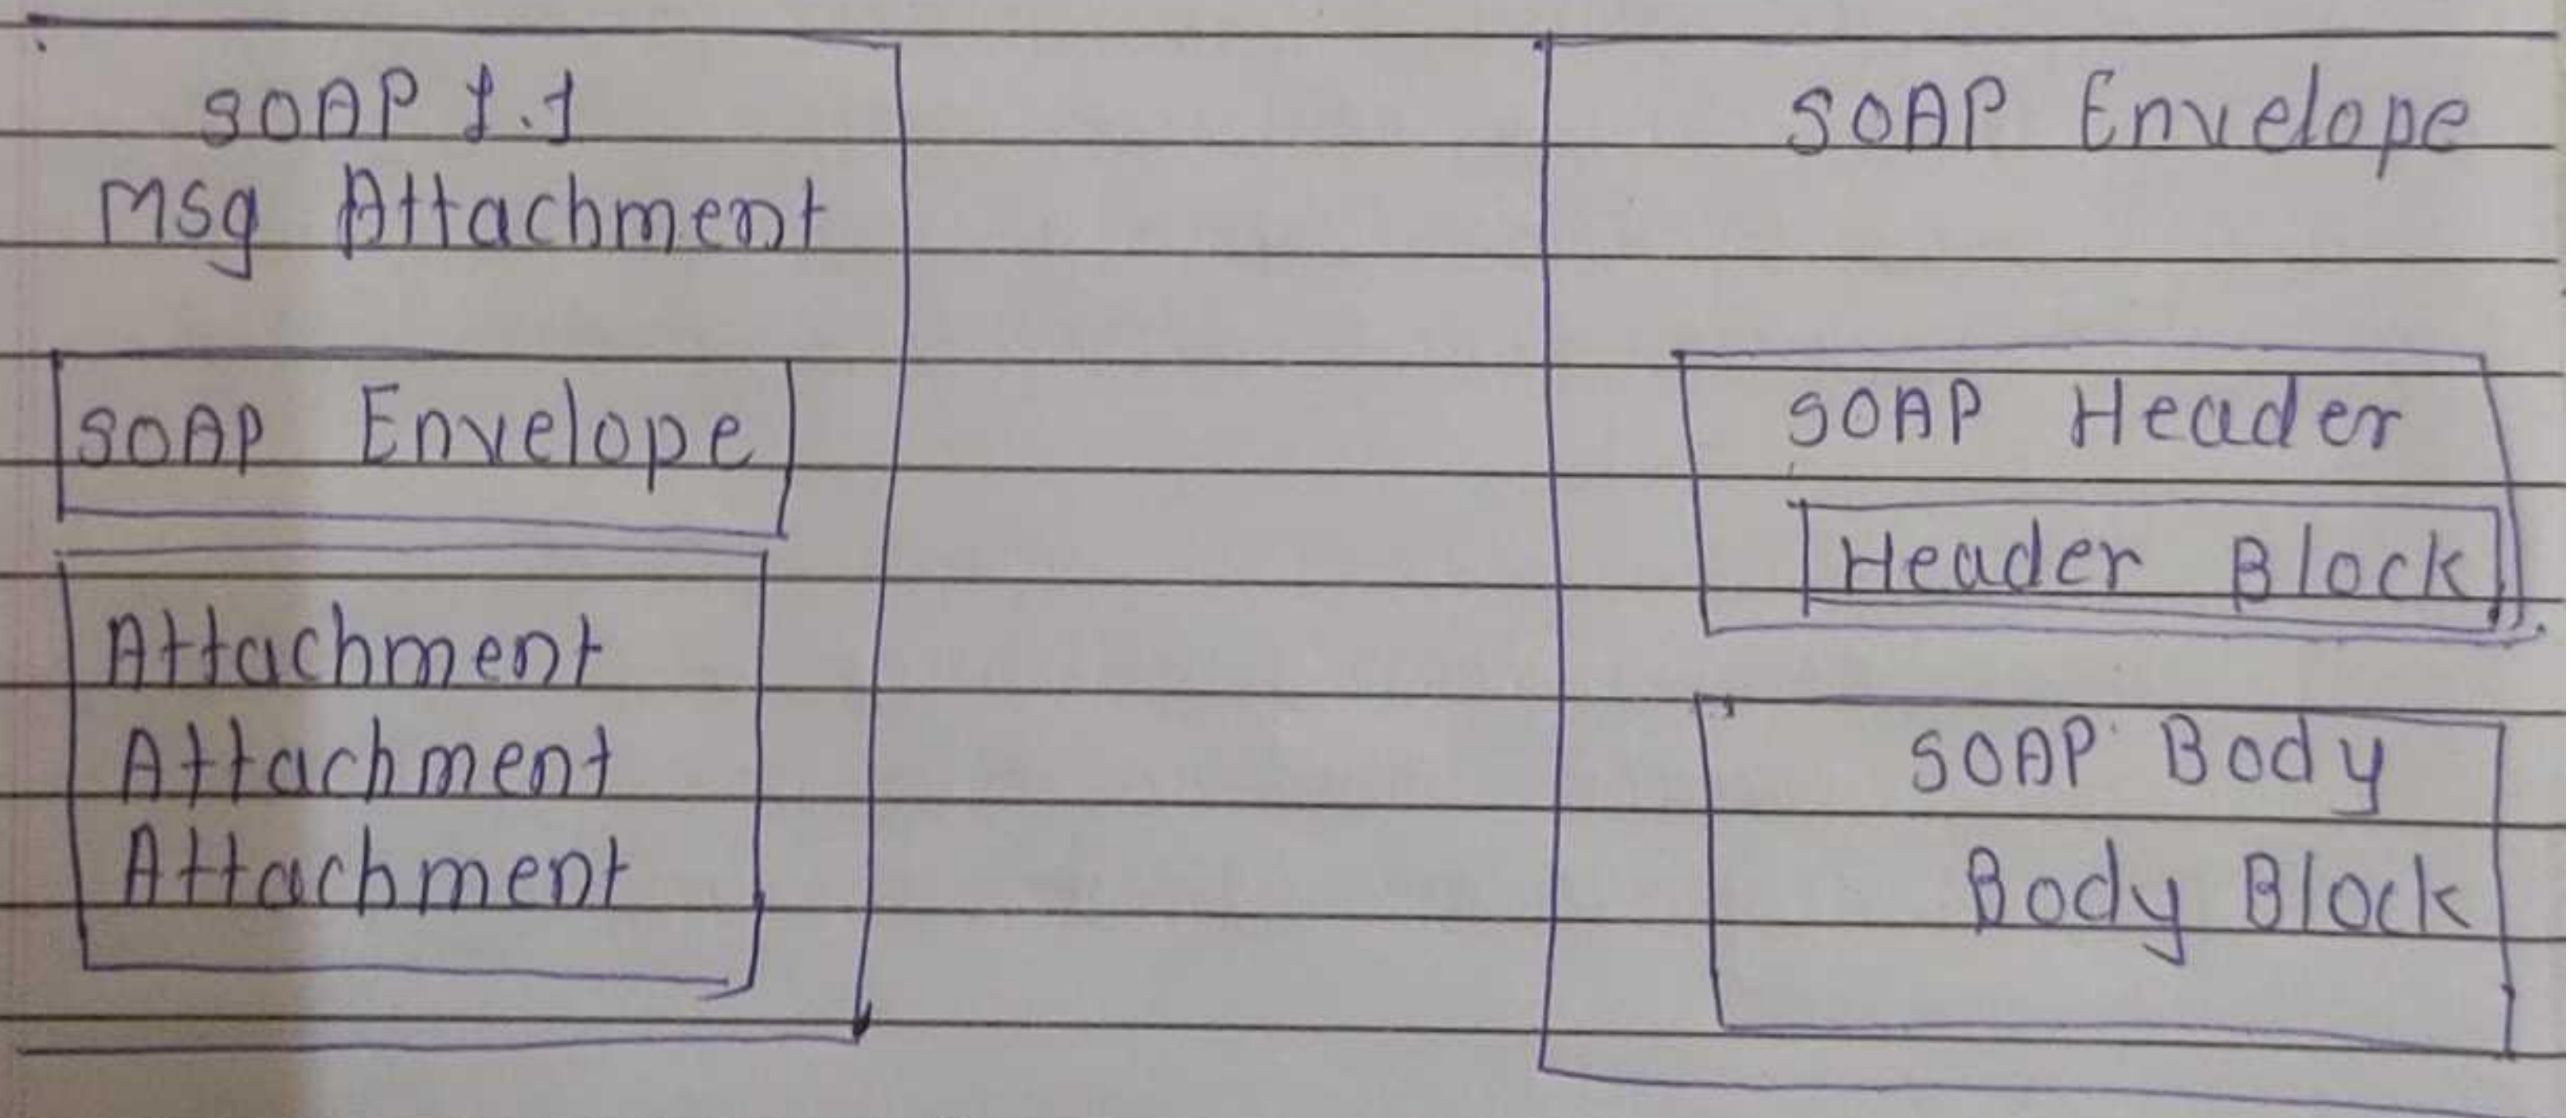 SOAP 1.1
Msg Attachment
SOAP Envelope
Attachment
Attachment
Attachment
SOAP Envelope
SOAP Header
Header Block
SOAP Body
Body Block